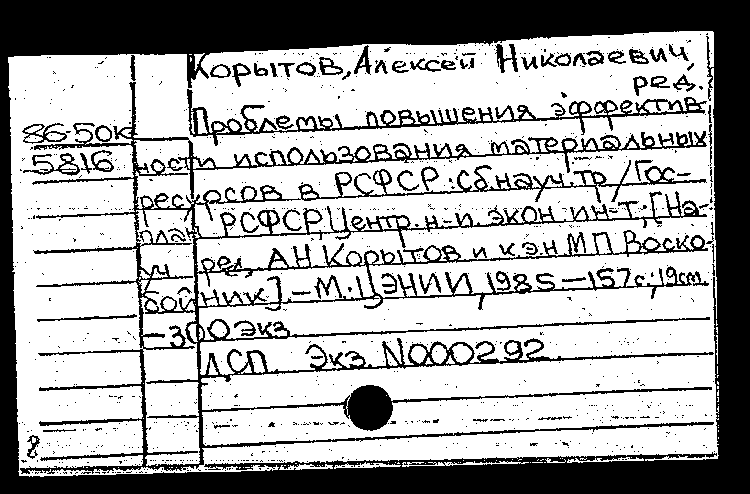 Корытов, Алексей Николаевич,
ред.
86-50к
5816
Проблемы повышения эффектив-
ности использования материальных
ресурсов в РСФСР: Сб.науч.тр / Гос-
план РСФСР, Центр. н-и. экон. ин-т; [На-
уч. ред. А.Н Корытов и к.э.н М.П Воско-
бойник]. — М.: ЦЭНИИ, 1985 — 157 с.; 19 см.
— 300 экз.
ДСП. Экз. N000292.
8